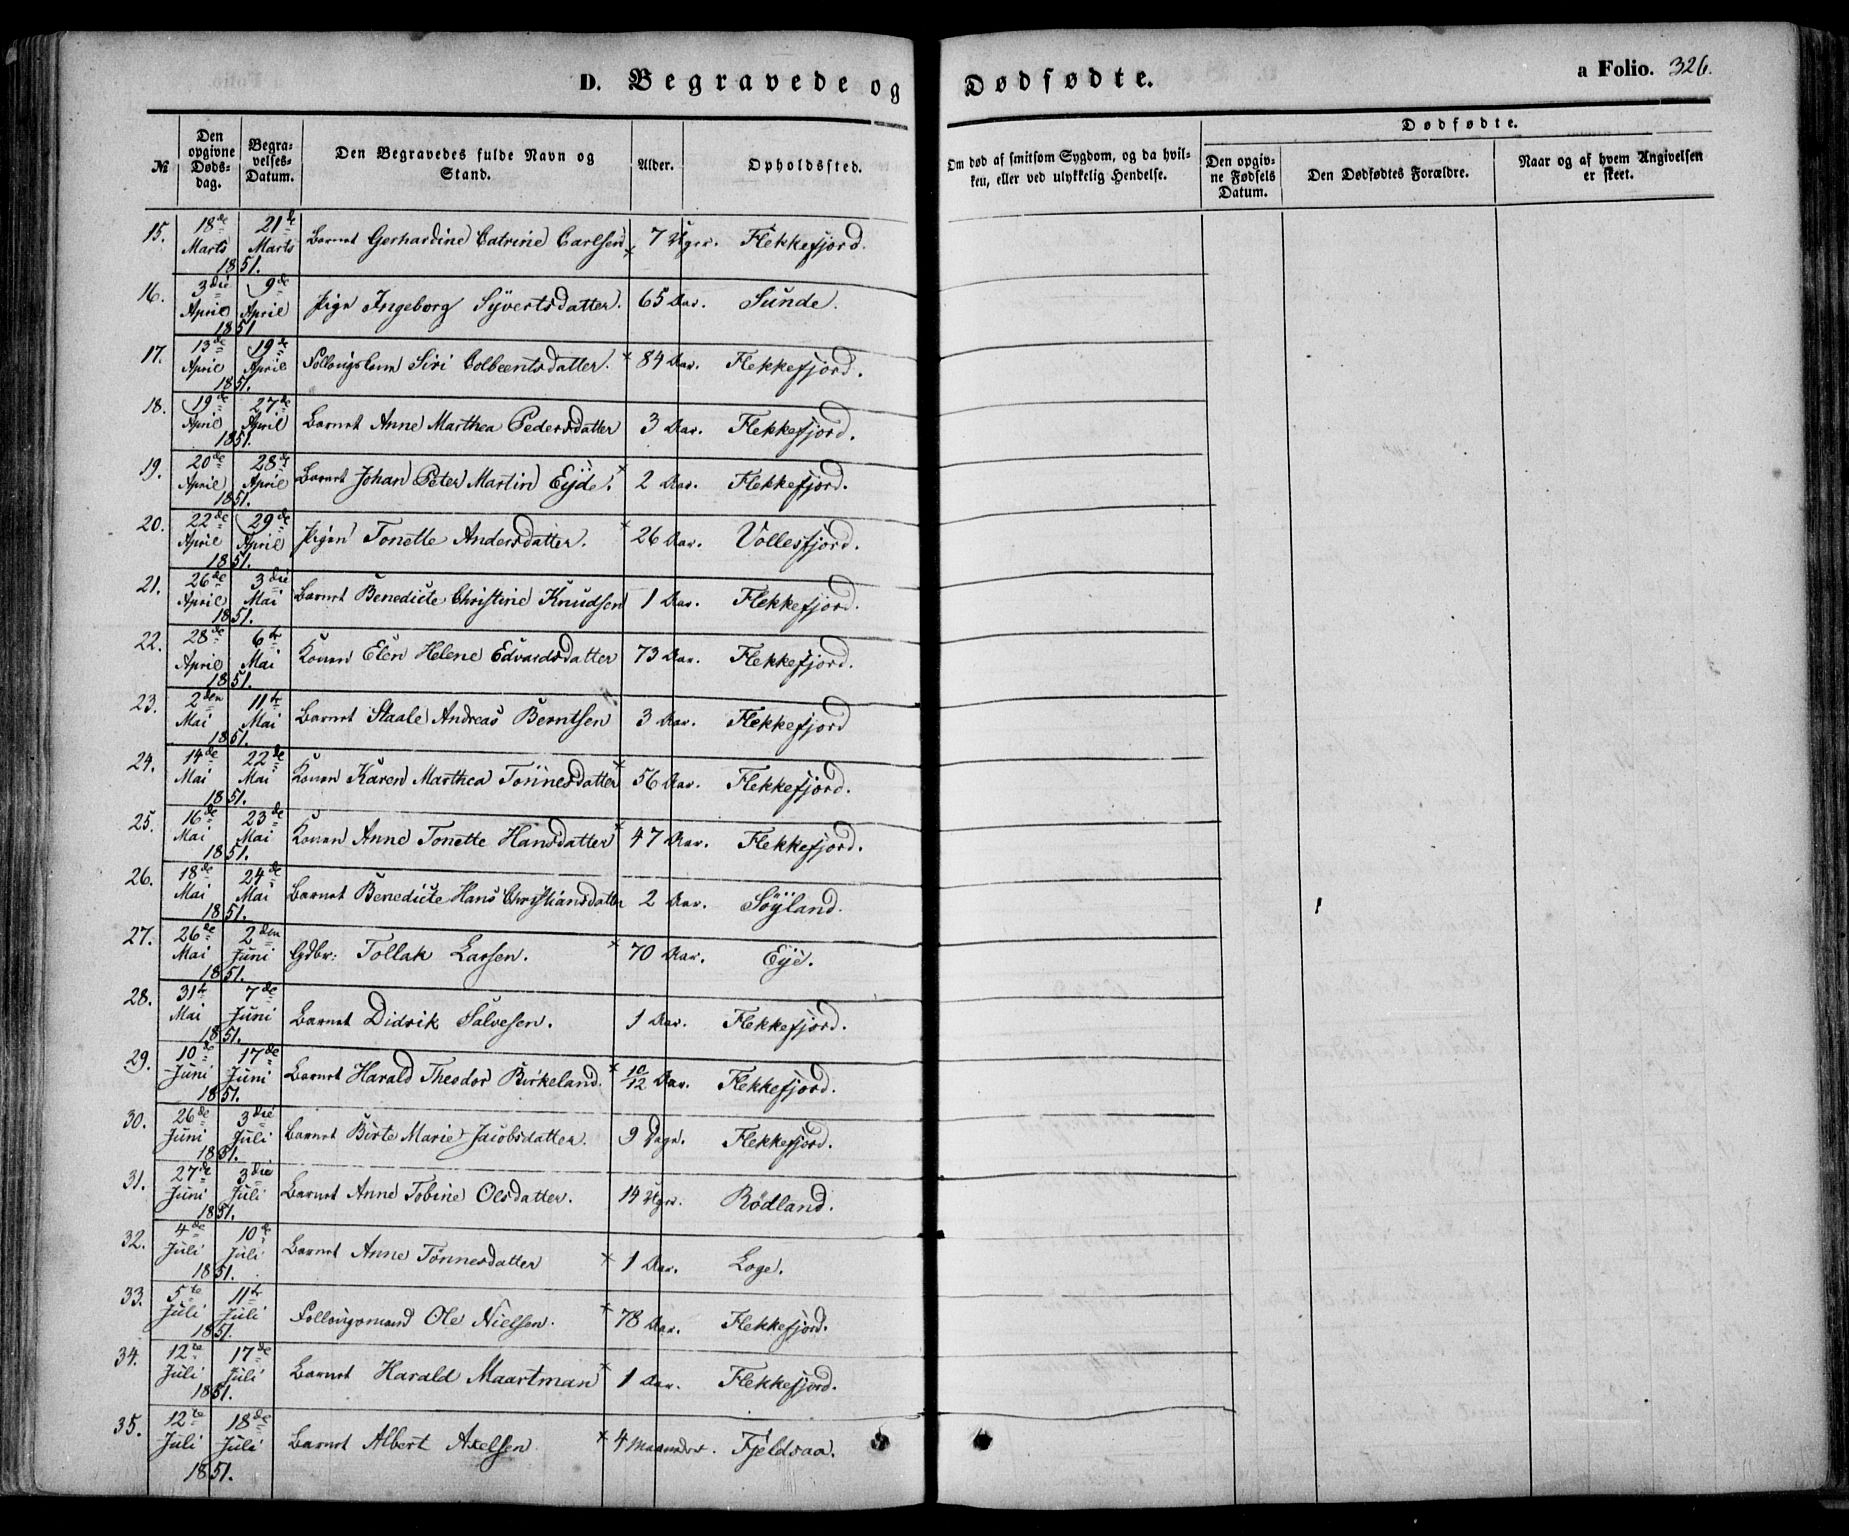 D. Begravede og Dødfødte. a Folio. 326.
№ Den opgivne Døds-dag. Begra-velses-Datum. Den Begravedes fulde Navn og Stand. Alder. Opholdssted. Om død af smitsom Sygdom, og da hvil-ken, eller ved ulykkelig Hendelse. Dødfødte. Den opgiv-ne Fødsels Datum. Den Dødfødtes Forældre. Naar og af hvem Angivelsen er skeet.
15. 18de Marts 21de Marts 1851. Barnet Gerhardine Catrine Carlsen 7 Uger. Flekkefjord.
16. 3die April 9de April 1851 Pige Ingeborg Syvertsdatter. 65 Aar. Sunde.
17. 13de April 19de April 1851. Føllougskone Siri Colbeentsdatter. 84 Aar. Flekkefjord.
18. 19de April 27de April 1851. Barnet Anne Marthea Pedersdatter 3 Aar. Flekkefjord.
19. 20de April 28de April 1851. Barnet Johan Peter Martin Eyde. 2 Aar. Flekkefjord.
20. 22de April 29de April 1851. Pigen Tonette Andersdatter. 26 Aar. Vollesfjord.
21. 26de April 3die Mai 1851. Barnet Benedicte Christine Knudsen 1 Aar. Flekkefjord.
22. 28de April 6te Mai 1851. Konen Elen Helene Edvardsdatter 73 Aar. Flekkefjord.
23. 2den Mai 11te Mai 1851. Barnet Staale Andreas Berntsen 3 Aar. Flekkefjord
24. 14de Mai 22de Mai 1851. Konen Karen Marthea Tönnesdatter 56 Aar. Flekkefjord.
25. 16de Mai 23de Mai 1851. Konen Anne Tonette Hansdatter 47 Aar. Flekkefjord.
26. 18de Mai 24de Mai 1851. Barnet Benedicte Hans Christiansdatter 2 Aar. Söyland.
27. 26de Mai 2den Juni 1851. Gdbr: Tollak Larsen. 70 Aar. Eye.
28. 31te Mai 7de Juni 1851. Barnet Didrik Salvesen. 1 Aar. Flekkefjord.
29. 10de Juni 17de Juni 1851. Barnet Harald Theodor Birkeland. 10/12 Aar. Flekkefjord.
30. 26de Juni 3die Juli 1851. Barnet Birte Marie Jacobsdatter. 9 Dage. Flekkefjord.
31. 27de Juni 3die Juli 1851. Barnet Anne Tobine Olsdatter. 14 Uger. Rödland.
32. 4de Juli 10de Juli 1851. Barnet Anne Tönnesdatter 1 Aar. Loge.
33. 5te Juli 11te Juli 1851. Føllougsmand Ole Nielsen. 78 Aar. Flekkefjord.
34. 12te Juli 17de Juli 1851. Barnet Harald Maartman 1 Aar. Flekkefjord.
35. 12te Juli 18de Juli 1851. Barnet Albert Axelsen 4 Maaneder. Fjeldsaa.